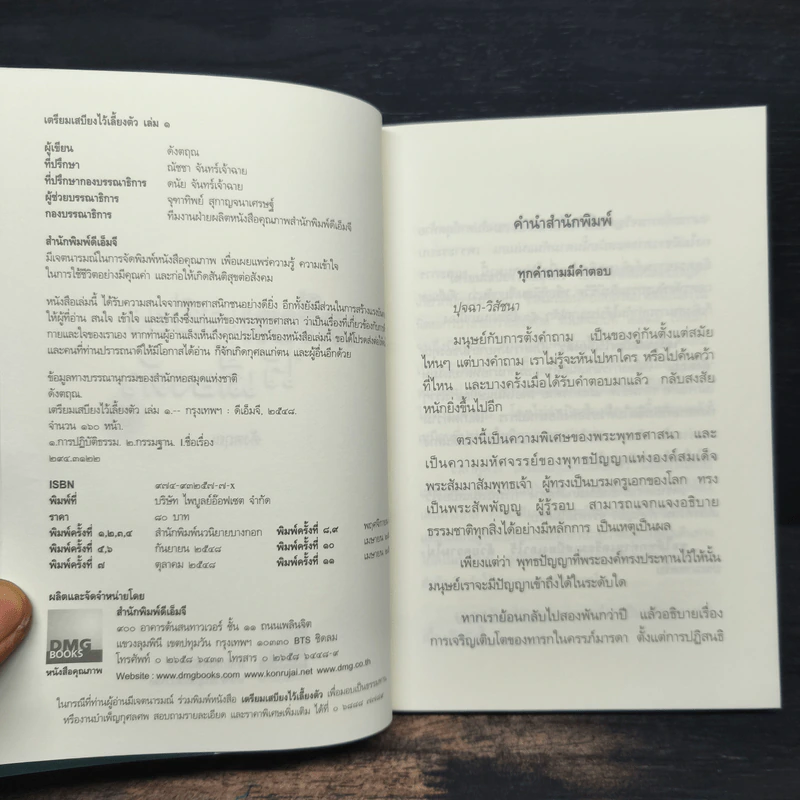 เตรียมเสบียงไว้เลี้ยงตัว เล่ม ๑
ผู้เขียน ดังตฤณ
ที่ปรึกษา ณัชชา จันทร์เจ้าฉาย
ที่ปรึกษากองบรรณาธิการ ดนัย จันทร์เจ้าฉาย
ผู้ช่วยบรรณาธิการ จุฑาทิพย์ สุกาญจนาเศรษฐ์
กองบรรณาธิการ ทีมงานฝ่ายผลิตหนังสือคุณภาพสำนักพิมพ์ดีเอ็มจี
สำนักพิมพ์ดีเอ็มจี
มีเจตนารมณ์ในการจัดพิมพ์หนังสือคุณภาพ เพื่อเผยแพร่ความรู้ ความเข้าใจ
ในการใช้ชีวิตอย่างมีคุณค่า และก่อให้เกิดสันติสุขต่อสังคม
หนังสือเล่มนี้ ได้รับความสนใจจากพุทธศาสนิกชนอย่างดียิ่ง อีกทั้งยังมีส่วนในการสร้างแรง
ให้ผู้ที่อ่าน สนใจ เข้าใจ และเข้าถึงซึ่งแก่นแท้ของพระพุทธศาสนา ว่าเป็นเรื่องที่เกี่ยวข้องกับ
กายและใจของเราเอง หากท่านผู้อ่านเล็งเห็นถึงคุณประโยชน์ของหนังสือเล่มนี้ ขอได้โปรดส่งต่อ
และคนที่ท่านปรารถนาดีให้มีโอกาสได้อ่าน ก็จักเกิดกุศลแก่ตน และผู้อื่นอีกด้วย
ข้อมูลทางบรรณานุกรมของสำนักหอสมุดแห่งชาติ
ดังตฤณ.
เตรียมเสบียงไว้เลี้ยงตัว เล่ม ๑.-- กรุงเทพฯ : ดีเอ็มจี, ๒๕๔๘.
จำนวน ๑๖๐ หน้า.
๑.การปฏิบัติธรรม. ๒.กรรมฐาน. I.ชื่อเรื่อง
๒๙๔.๓๑๒๒
ISBN ๙๗๔-๙๓๒๕๗-๗-x
พิมพ์ที่ บริษัท ไพบูลย์อ๊อฟเซต จำกัด
ราคา ๘๐ บาท
พิมพ์ครั้งที่ ๑,๒,๓,๔ สำนักพิมพ์นวนิยายบางกอก พิมพ์ครั้งที่ ๘,๙
พิมพ์ครั้งที่ ๕,๖ กันยายน ๒๕๔๘ พิมพ์ครั้งที่ ๑๐
พิมพ์ครั้งที่ ๗ ตุลาคม ๒๕๔๘ พิมพ์ครั้งที่ ๑๑
ผลิตและจัดจำหน่ายโดย
สำนักพิมพ์ดีเอ็มจี
๙๐๐ อาคารต้นสนทาวเวอร์ ชั้น ๑๑ ถนนเพลินจิต
แขวงลุมพินี เขตปทุมวัน กรุงเทพฯ ๑๐๓๓๐ BTS ชิดลม
โทรศัพท์ ๐ ๒๖๕๘ ๖๔๓๓ โทรสาร ๐ ๒๖๕๘ ๖๔๔๘-๙
Website : www.dmgbooks.com www.konrujai.net www.dmg.co.th
DMG
BOOKS
หนังสือคุณภาพ
ในกรณีที่ท่านผู้อ่านมีเจตนารมณ์ ร่วมพิมพ์หนังสือ เตรียมเสบียงไว้เลี้ยงตัว เพื่อมอบเป็น
หรืองานบำเพ็ญกุศลศพ สอบถามรายละเอียด และราคาพิเศษเพิ่มเติม ได้ที่
คำนำสำนักพิมพ์
ทุกคำถามมีคำตอบ
ปุจฉา-วิสัชนา
มนุษย์กับการตั้งคำถาม เป็นของคู่กันตั้งแต่สมัย
ไหนๆ แต่บางคำถาม เราไม่รู้จะหันไปหาใคร หรือไปค้นคว้า
ที่ไหน และบางครั้งเมื่อได้รับคำตอบมาแล้ว กลับสงสัย
หนักยิ่งขึ้นไปอีก
ตรงนี้เป็นความพิเศษของพระพุทธศาสนา และ
เป็นความมหัศจรรย์ของพุทธปัญญาแห่งองค์สมเด็จ
พระสัมมาสัมพุทธเจ้า ผู้ทรงเป็นบรมครูเอกของโลก ทรง
เป็นพระสัพพัญญู ผู้รู้รอบ สามารถแจกแจงอธิบาย
ธรรมชาติทุกสิ่งได้อย่างมีหลักการ เป็นเหตุเป็นผล
เพียงแต่ว่า พุทธปัญญาที่พระองค์ทรงประทานไว้ให้นั้น
มนุษย์เราจะมีปัญญาเข้าถึงได้ในระดับใด
หากเราย้อนกลับไปสองพันกว่าปี แล้วอธิบายเรื่อง
การเจริญเติบโตของทารกในครรภ์มารดา ตั้งแต่การปฏิสนธิ